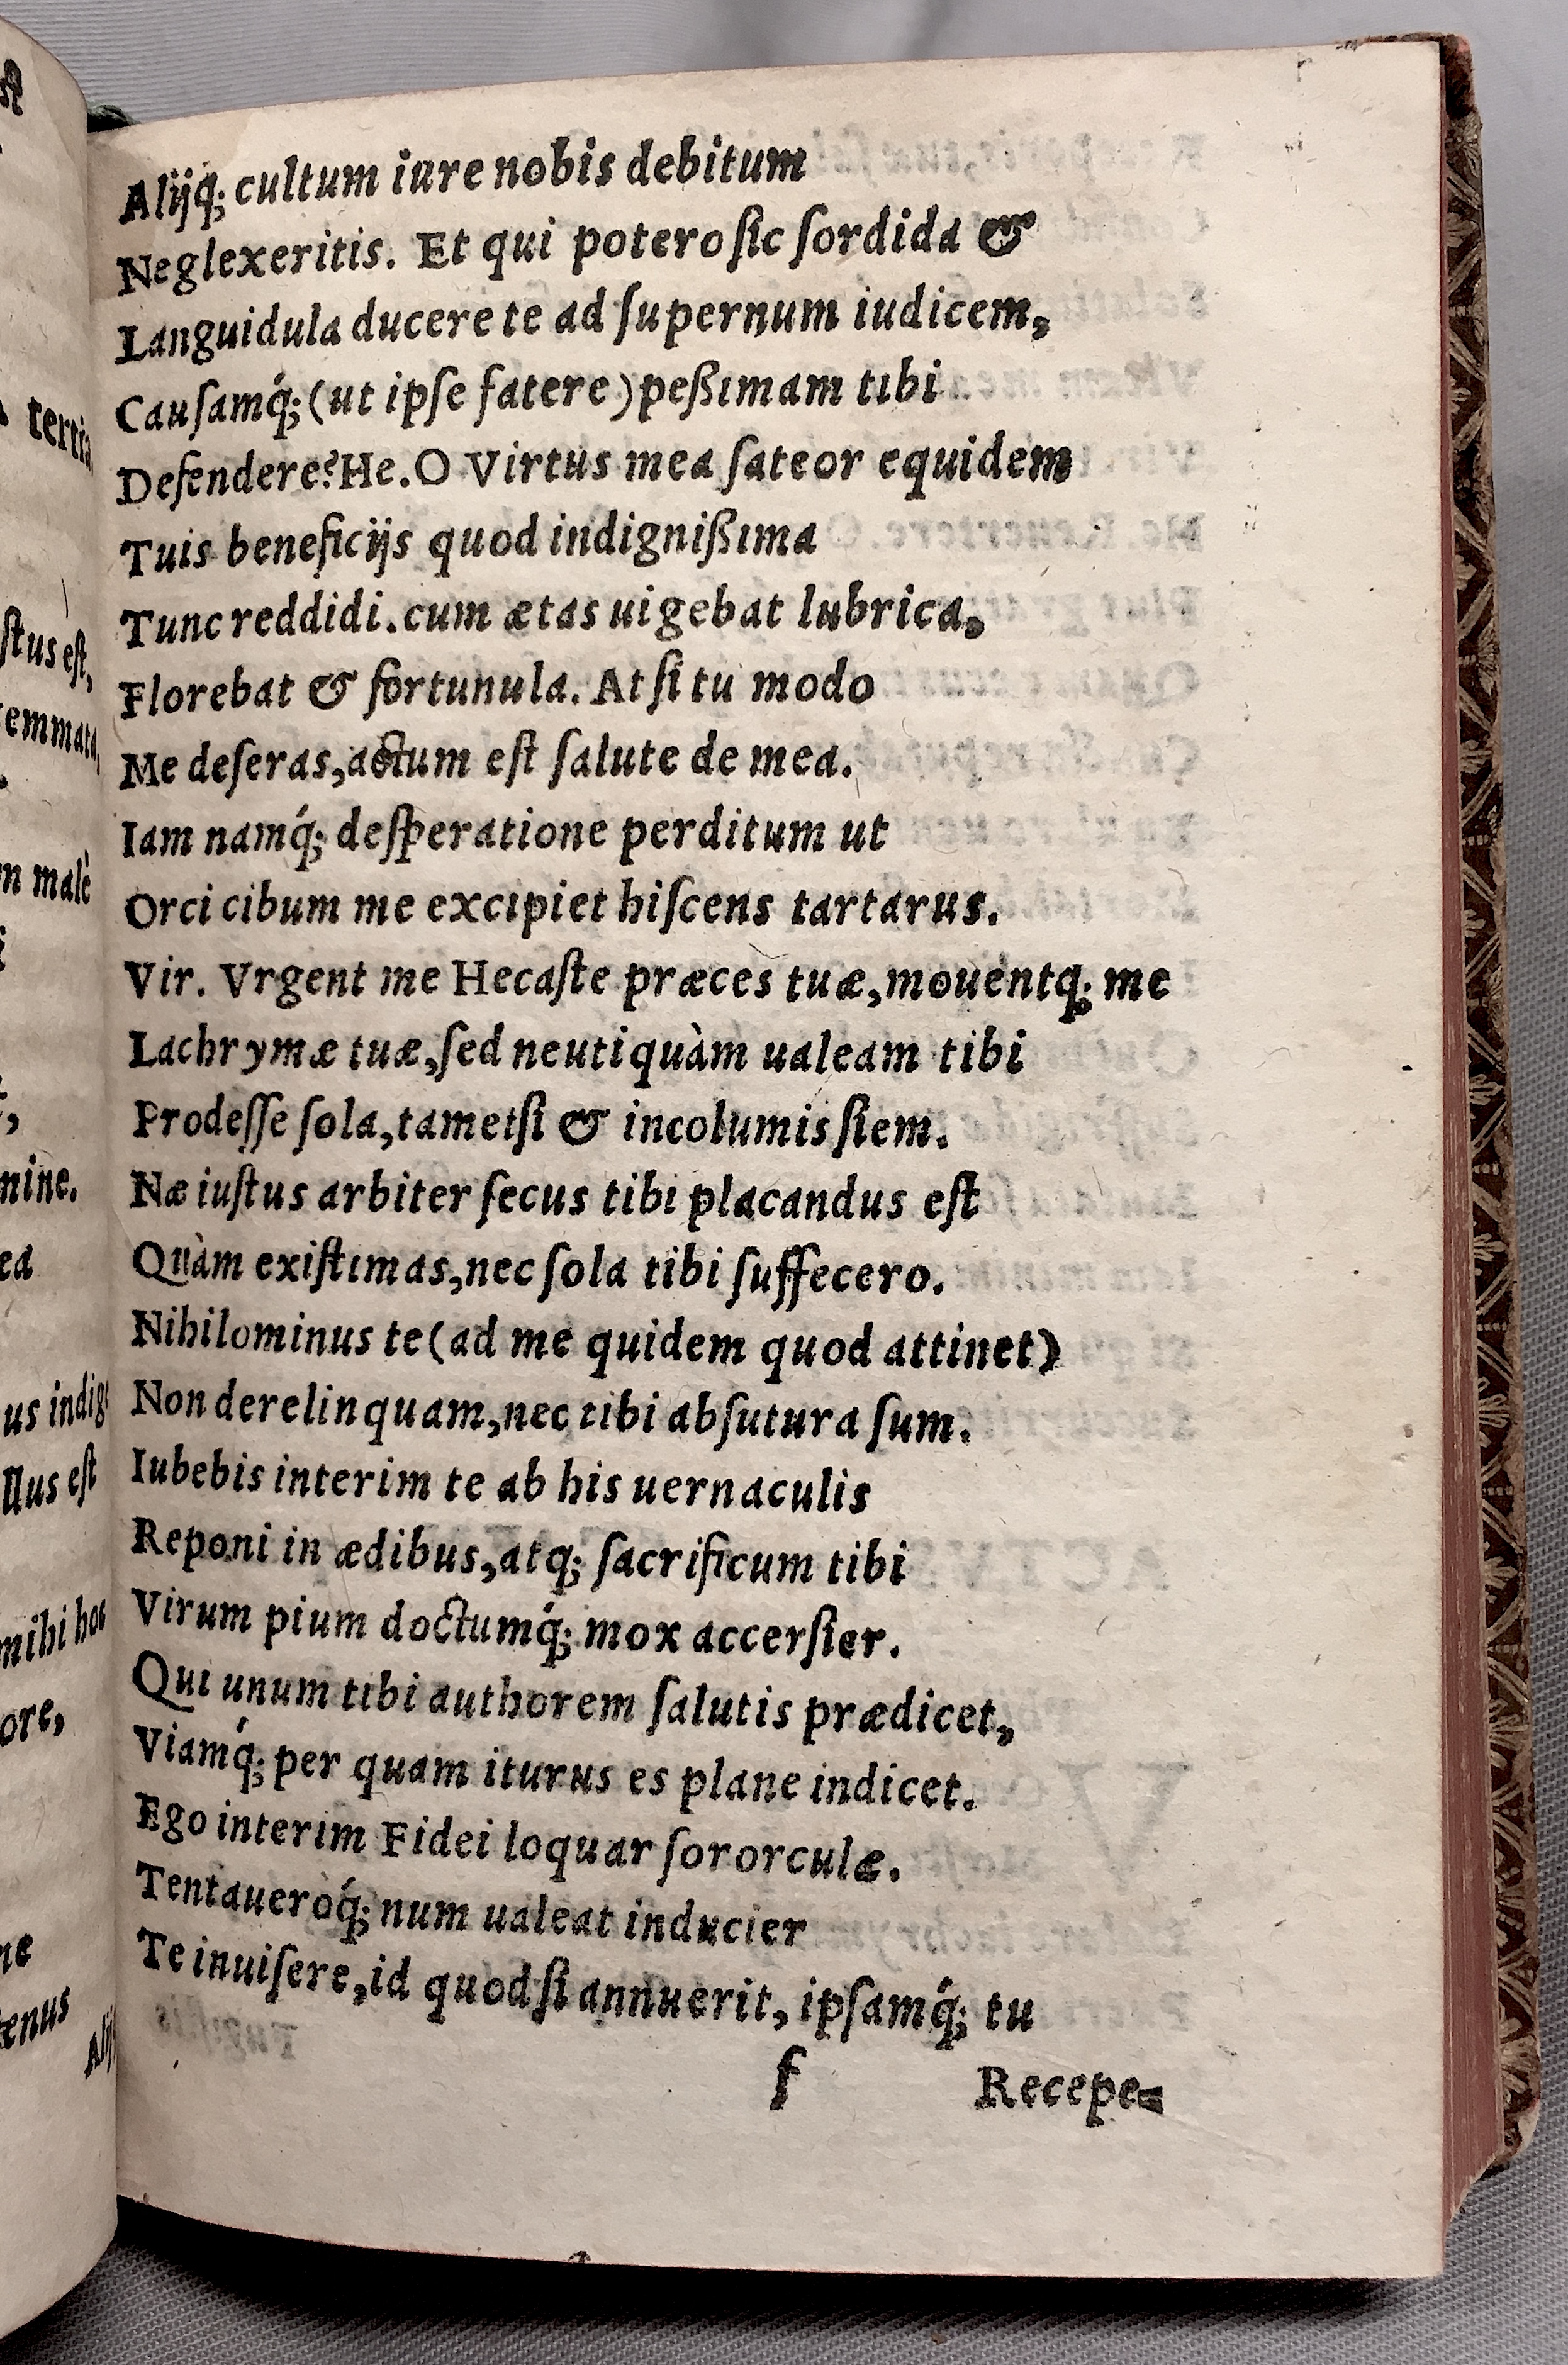 Alijq́; cultum iure nobis debitum
Neglexeritis. Et qui potero ſic ſordida &
Languidula ducere te ad ſupernum iudicem,
Cauſamq́; (ut ipſe fatere) peßimam tibi
Defendere? He. O Virtus mea fateor equidem
Tuis beneficijs quod indignißima
Tunc reddidi. cum ætas uigebat lubrica,
Florebat & fortunula. At ſi tu modo
Me deſeras, actum eſt ſalute de mea.
Iam namq́; deſperatione perditum ut
Orci cibum me excipiet hiſcens tartarus.
Vir. Vrgent me Hecaſte præces tuæ, mouéntq; me
Lachrymæ tuæ, ſed neutiquàm ualeam tibi
Prodeſſe ſola, tametſi & incolumis ſiem.
Næ iuſtus arbiter ſecus tibi placandus eſt
Quàm exiſtimas, nec ſola tibi ſuffecero.
Nihilominus te (ad me quidem quod attinet)
Non derelinquam, nec tibi abfutura ſum.
Iubebis interim te ab his uernaculis
Reponi in ædibus, atq; ſacrificum tibi
Virum pium doctumq́; mox accerſier.
Qui unum tibi authorem ſalutis prædicet,
Viamq́; per quam iturus es plane indicet.
Ego interim Fidei loquar ſororculæ.
Tentaueroq́; num ualeat inducier
Te inuiſere, id quod ſi annuerit, ipſamq́; tu
f Recepe-